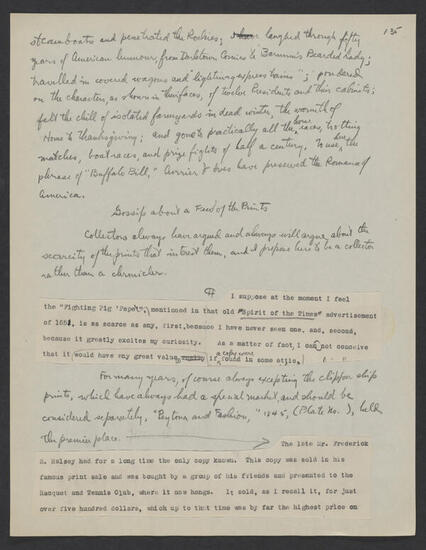 135
steamboats and penetrated the Rockies; laughed through fifty
years of American humour, from Darktown Comics to Barnum's Bearded Lady;
travelled in covered wagons and "lightning express trains"; pondered
on the character, as shown in their faces, of twelve Presidents and their cabinets;
felt the chill of isolated farmyards in dead winter, the warmth of
Home to Thanksgiving; and gone to practically all the horse races, trotting
matches, boat races, and prize fights of half a century. To use, the
phrase of "Buffalo Bill," Currier & Ives have preserved the Romance of
America.
Gossip about a Few of the Prints
Collectors always have argued and always will argue about the
scarcity of the prints that interest them, and I propose here to be a collector
rather than a chronicler.
¶ I suppose at the moment I feel
the "Fighting Pig 'Pape'", mentioned in that old "Spirit of the Times" advertisement
of 1851, is as scarce as any, first, because I have never seen one, and, second,
because it greatly excites my curiosity. As a matter of fact, I can not conceive
that it would have any great value if a copy were found in some attic.
For many years, of course always excepting the clipper ship
prints, which have always had a special market, and should be
considered separately, "Peytona and Fashion," 1845, (Plate No. ), held
the premier place.
The late Mr. Frederick
R. Halsey had for a long time the only copy known. This copy was sold in his
famous print sale and was bought by a group of his friends and presented to the
Racquet and Tennis Club, where it now hangs. It sold, as I recall it, for just
over five hundred dollars, which up to that time was by far the highest price on